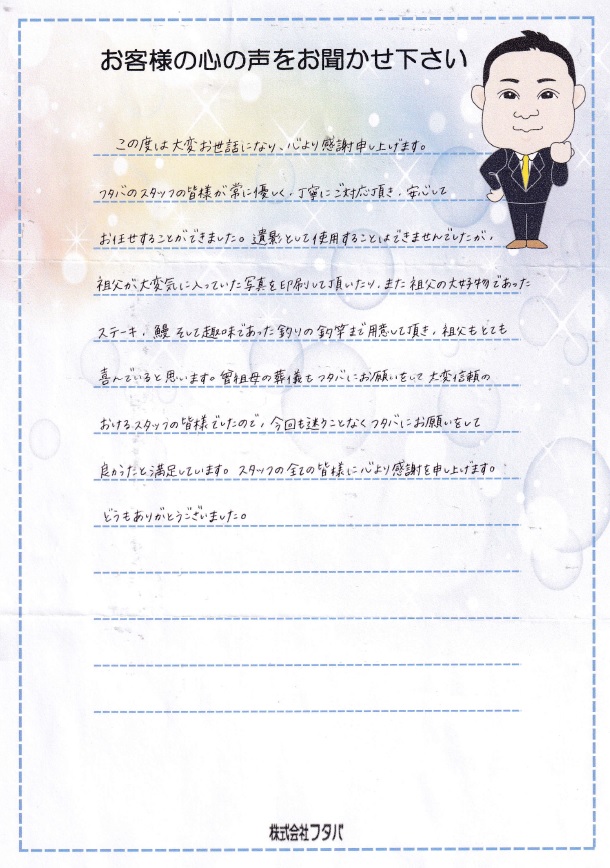 お客様の心の声をお聞かせ下さい
この度は大変お世話になり、心より感謝申し上げます。
フタバのスタッフの皆様が常に優しく、丁寧にご対応頂き、安心して
お任せすることができました。遺影として使用することはできませんでしたが、
祖父が大変気に入っていた写真を印刷して頂いたり、また祖父の大好物であった
ステーキ、鰻そして趣味であった釣りの釣竿まで用意して頂き、祖父もとても
喜んでいると思います。曽祖母の葬儀もフタバにお願いをして大変信頼の
おけるスタッフの皆様でしたので、今回も迷うことなくフタバにお願いをして
良かったと満足しています。スタッフの全ての皆様に心より感謝を申し上げます。
どうもありがとうございました。
株式会社フタバ